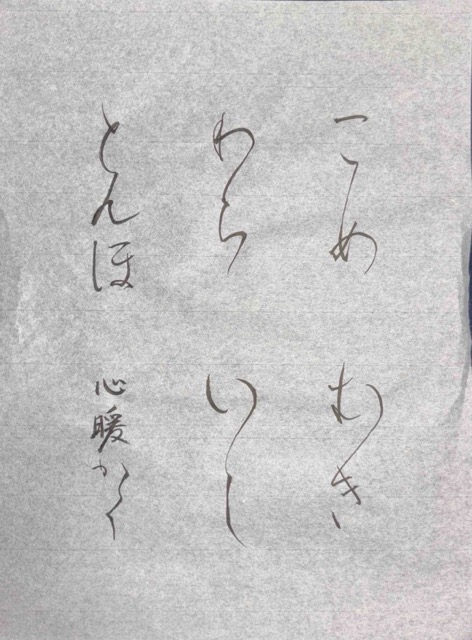 こめ むき
わら いし
とんほ 心暖かく